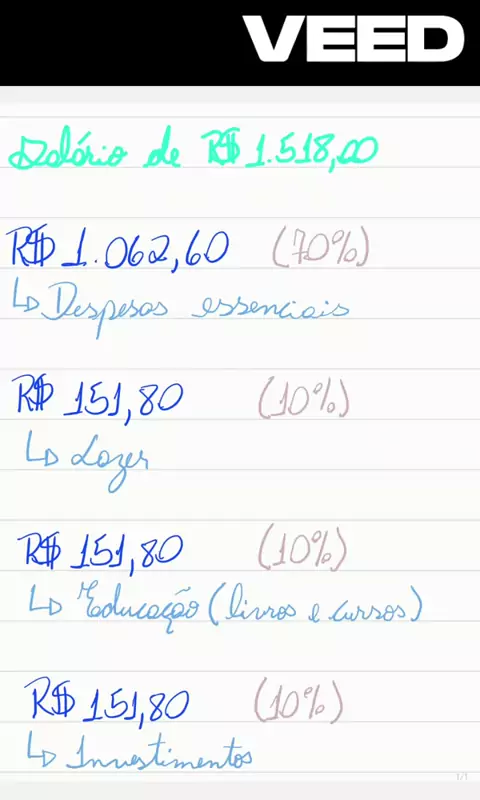 VEED
Salário de R$ 1.518,00
R$ 1.062,60 (70%)
↳ Despesas essenciais
R$ 151,80 (10%)
↳ Lazer
R$ 151,80 (10%)
↳ Educação (livros e cursos)
R$ 151,80 (10%)
↳ Investimentos
1/1